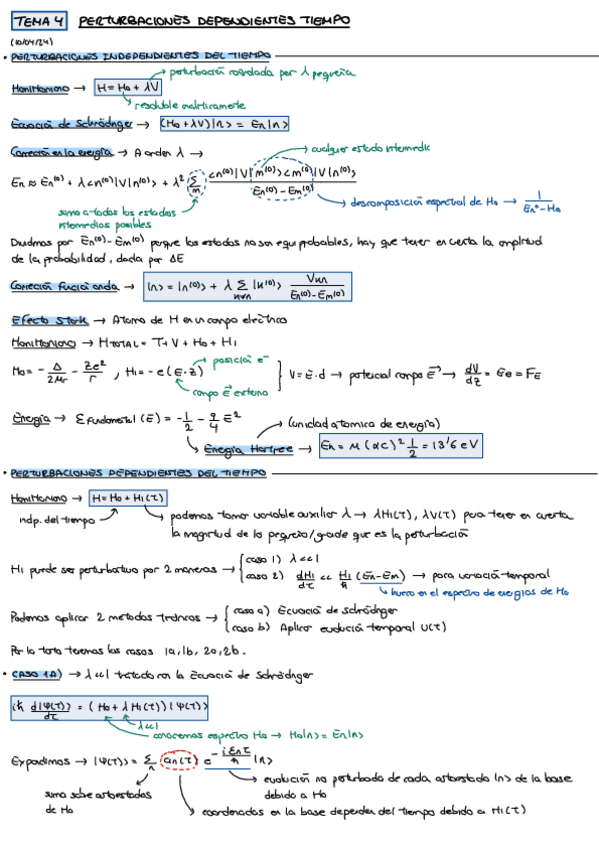 TEMA 4 PERTURBACIONES DEPENDIENTES TIEMPO
(10/04/24)
• PERTURBACIONES INDEPENDIENTES DEL TIEMPO
perturbación controlada por λ pequeña
Hamiltoniano → H = H₀ + λV
resoluble analíticamente
Ecuación de Schrödinger → (H₀ + λV)|n> = En|n>
Corrección en la energía → A orden λ →
cualquier estado intermedio
En ≈ En⁽⁰⁾ + λ<n⁽⁰⁾|V|n⁽⁰⁾> + λ² Σm <n⁽⁰⁾|V|m⁽⁰⁾><m⁽⁰⁾|V|n⁽⁰⁾> / En⁽⁰⁾ - Em⁽⁰⁾
suma a todos los estados intermedios posibles
descomposición espectral de H₀ → 1 / En⁰ - H₀
Dividimos por En⁽⁰⁾ - Em⁽⁰⁾ porque los estados no son equiprobables, hay que tener en cuenta la amplitud
de la probabilidad, dada por ΔE
Corrección función onda → |n> = |n⁽⁰⁾> + λ Σ |k⁽⁰⁾> Vkn / En⁽⁰⁾ - Em⁽⁰⁾
Efecto Stark → Átomo de H en un campo eléctrico
Hamiltoniano → HTOTAL = T + V + H₀ + H₁
posición e⁻
H₀ = - Δ/2μr - Ze²/r , H₁ = - e (E · z) } V = E · d → potencial campo E → dV/dz = Ee = FE
campo E externo
Energía → E fundamental (E) = - 1/2 - 9/4 E²
(unidad atómica de energía)
Energía Hartree → En = μ (αc)² 1/2 = 13'6 eV
• PERTURBACIONES DEPENDIENTES DEL TIEMPO
Hamiltoniano → H = H₀ + H₁(τ)
indp. del tiempo
podemos tomar variable auxiliar λ → λH₁(τ), λV(τ) para tener en cuenta
la magnitud de lo pequeña/grande que es la perturbación
H₁ puede ser perturbativo por 2 maneras → { caso 1) λ<<1
caso 2) dH₁/dτ << H₁/ħ (En - Em) → para variación temporal
hueco en el espectro de energías de H₀
Podemos aplicar 2 métodos teóricos → { caso a) Ecuación de Schrödinger
caso b) Aplicar evolución temporal U(τ)
Por lo tanto tenemos los casos 1a, 1b, 2a, 2b.
• CASO 1A) → λ<<1 tratado con la Ecuación de Schrödinger
iħ d|Ψ(τ)>/dτ = (H₀ + λH₁(τ))|Ψ(τ)>
λ<<1
conocemos espectro H₀ → H₀|n> = En|n>
Expandimos → |Ψ(τ)> = Σn an(τ) e^(-iEnτ/ħ) |n>
suma sobre autoestados
de H₀
evolución no perturbada de cada autoestado |n> de la base
debido a H₀
coordenadas en la base dependen del tiempo debido a H₁(τ)